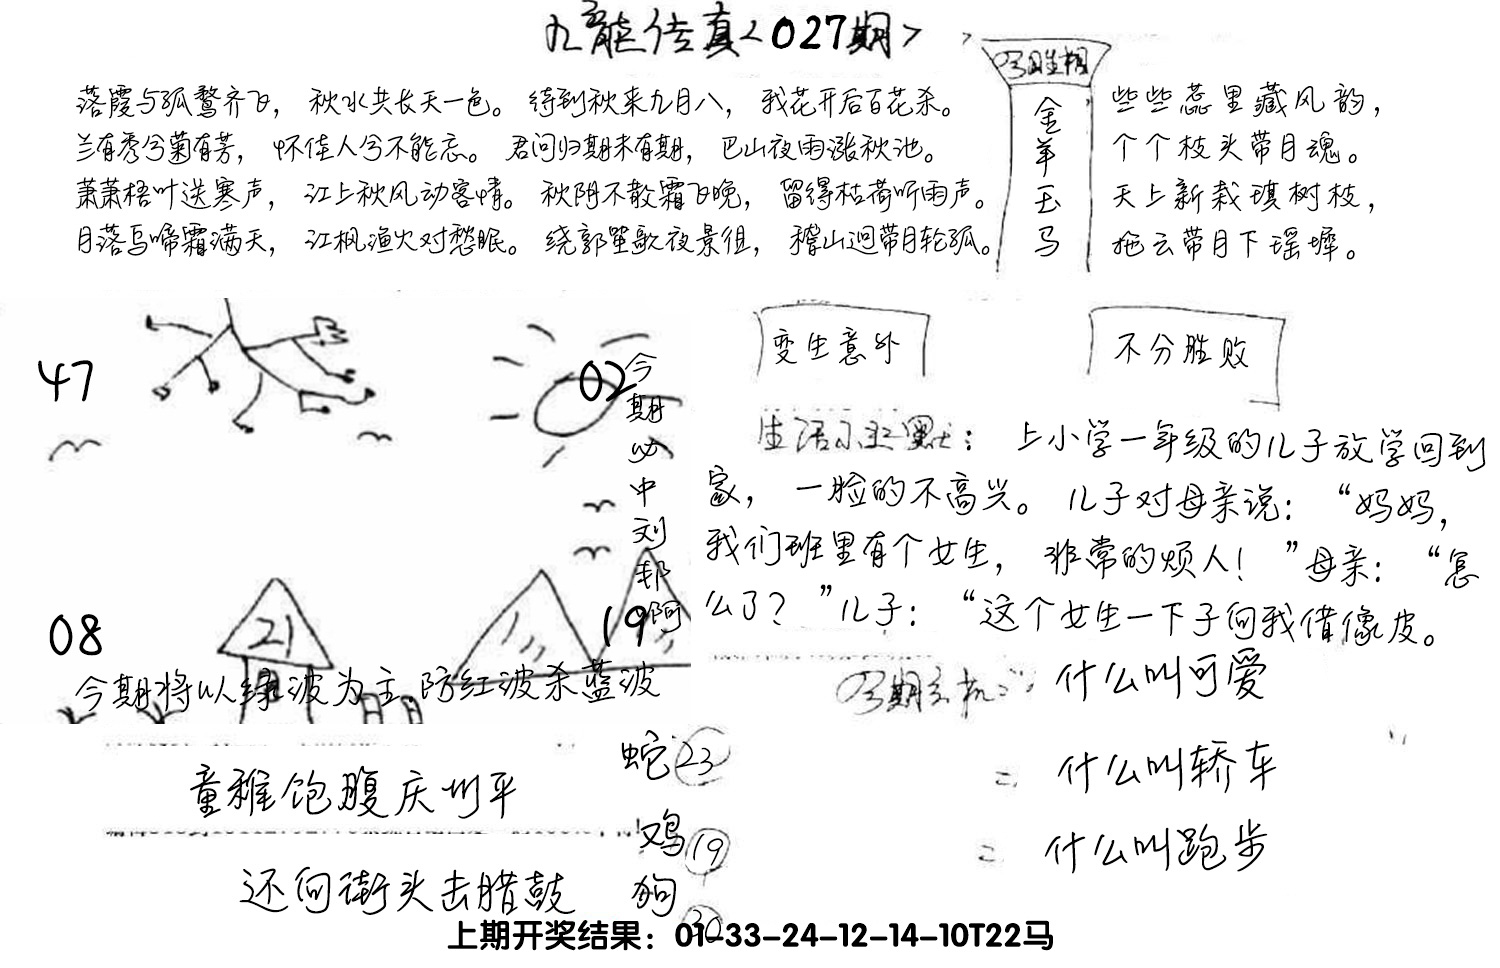 九龍传真<027期>
落霞与孤鹜齐飞，秋水共长天一色。待到秋来九月八，我花开后百花杀。
兰有秀兮菊有芳，怀佳人兮不能忘。君问归期未有期，巴山夜雨涨秋池。
萧萧梧叶送寒声，江上秋风动客情。秋阴不散霜飞晚，留得枯荷听雨声。
月落乌啼霜满天，江枫渔火对愁眠。绕郭笙歌夜景徂，稽山迥带月轮孤。
金羊玉马
些些蕊里藏风韵，
个个枝头带月魂。
天上新栽琪树枝，
拖云带月下瑶墀。
47
02
08
21
19
今期必中刘邦阿
今期将以绿波为主.防红波杀蓝波
变生意外
不分胜败
生活小幽默：上小学一年级的儿子放学回到
家，一脸的不高兴。儿子对母亲说：“妈妈，
我们班里有个女生，非常的烦人！”母亲：“怎
么了？”儿子：“这个女生一下子向我借像皮。
什么叫可爱
二 什么叫轿车
二 什么叫跑步
童稚饱腹庆州平
还向街头击腊鼓
蛇23
鸡19
狗30
上期开奖结果：01-33-24-12-14-10T22马